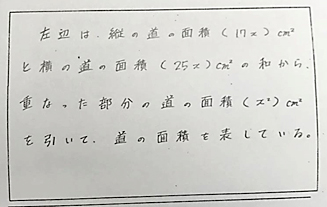 左辺は、縦の道の面積(17x)cm²
と横の道の面積(25x)cm²の和から、
重なった部分の道の面積(x²)cm²
を引いて、道の面積を表している。